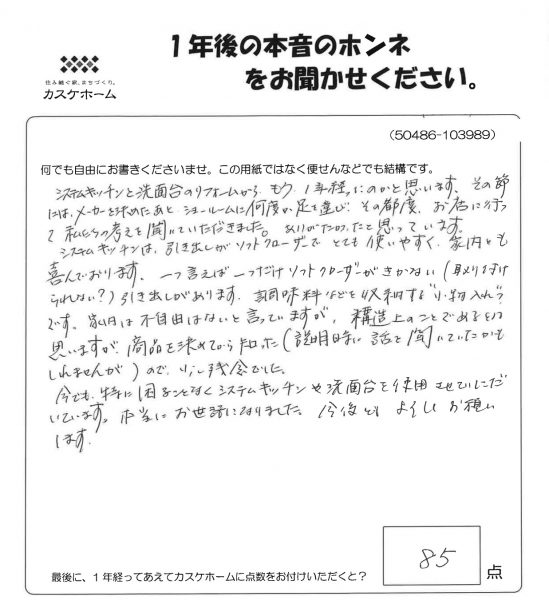 1年後の本音のホンネ
をお聞かせください。
住み継ぐ家、まちづくり。
カスケホーム
(50486-103989)
何でも自由にお書きくださいませ。この用紙ではなく便せんなどでも結構です。
システムキッチンと洗面台のリフォームから、もう、1年経ったのかと思います。その節
には、メーカーを決めたあと、ショールームに何度か足を運び、その都度、お店に行っ
て私たちの考えを聞いていただきました。ありがたかったと思っています。
システムキッチンは、引き出しがソフトクローザーで とても 使いやすく、家内とも
喜んでおります。一つ言えば一つだけソフトクローザーがきかない(取り付け
られない?)引き出しがあります。調味料などを収納する"小物入れ"
です。家内は不自由はないと言っていますが、構造上のことであるとは
思いますが、商品を決めてから知った(説明時に話を聞いていたかも
しれませんが)ので、少し残念でした。
今でも、特に困ることなくシステムキッチンや洗面台を使用させていただ
いています。本当にお世話になりました。今後ともよろしくお願い
します。
最後に、1年経ってあえてカスケホームに点数をお付けいただくと?
85
点